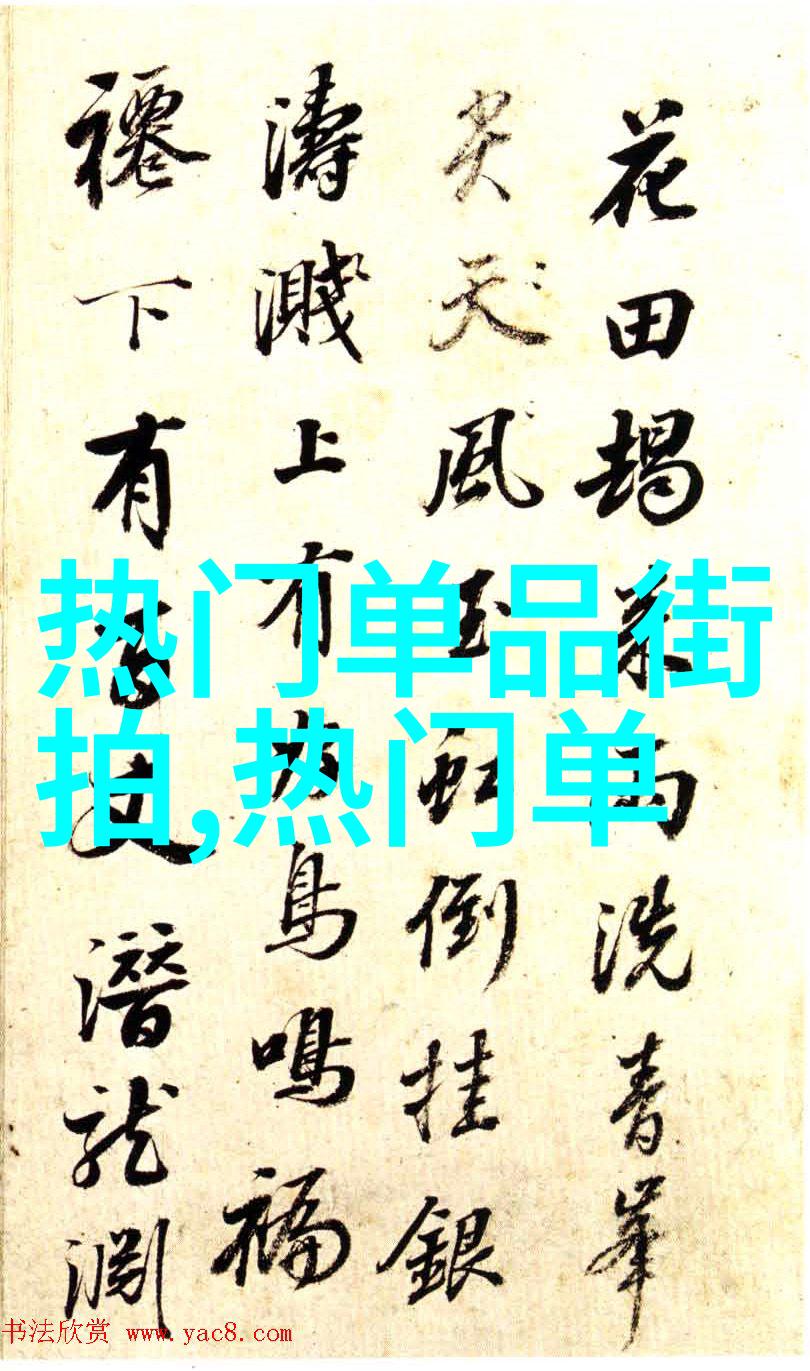 花田朅来雨洗青峯
天風玉虹倒挂銀
濤濺上有鳥鳴福
下有文潛龍渊
热门单品街
拍,热门单
书法欣赏 www.yac8.com